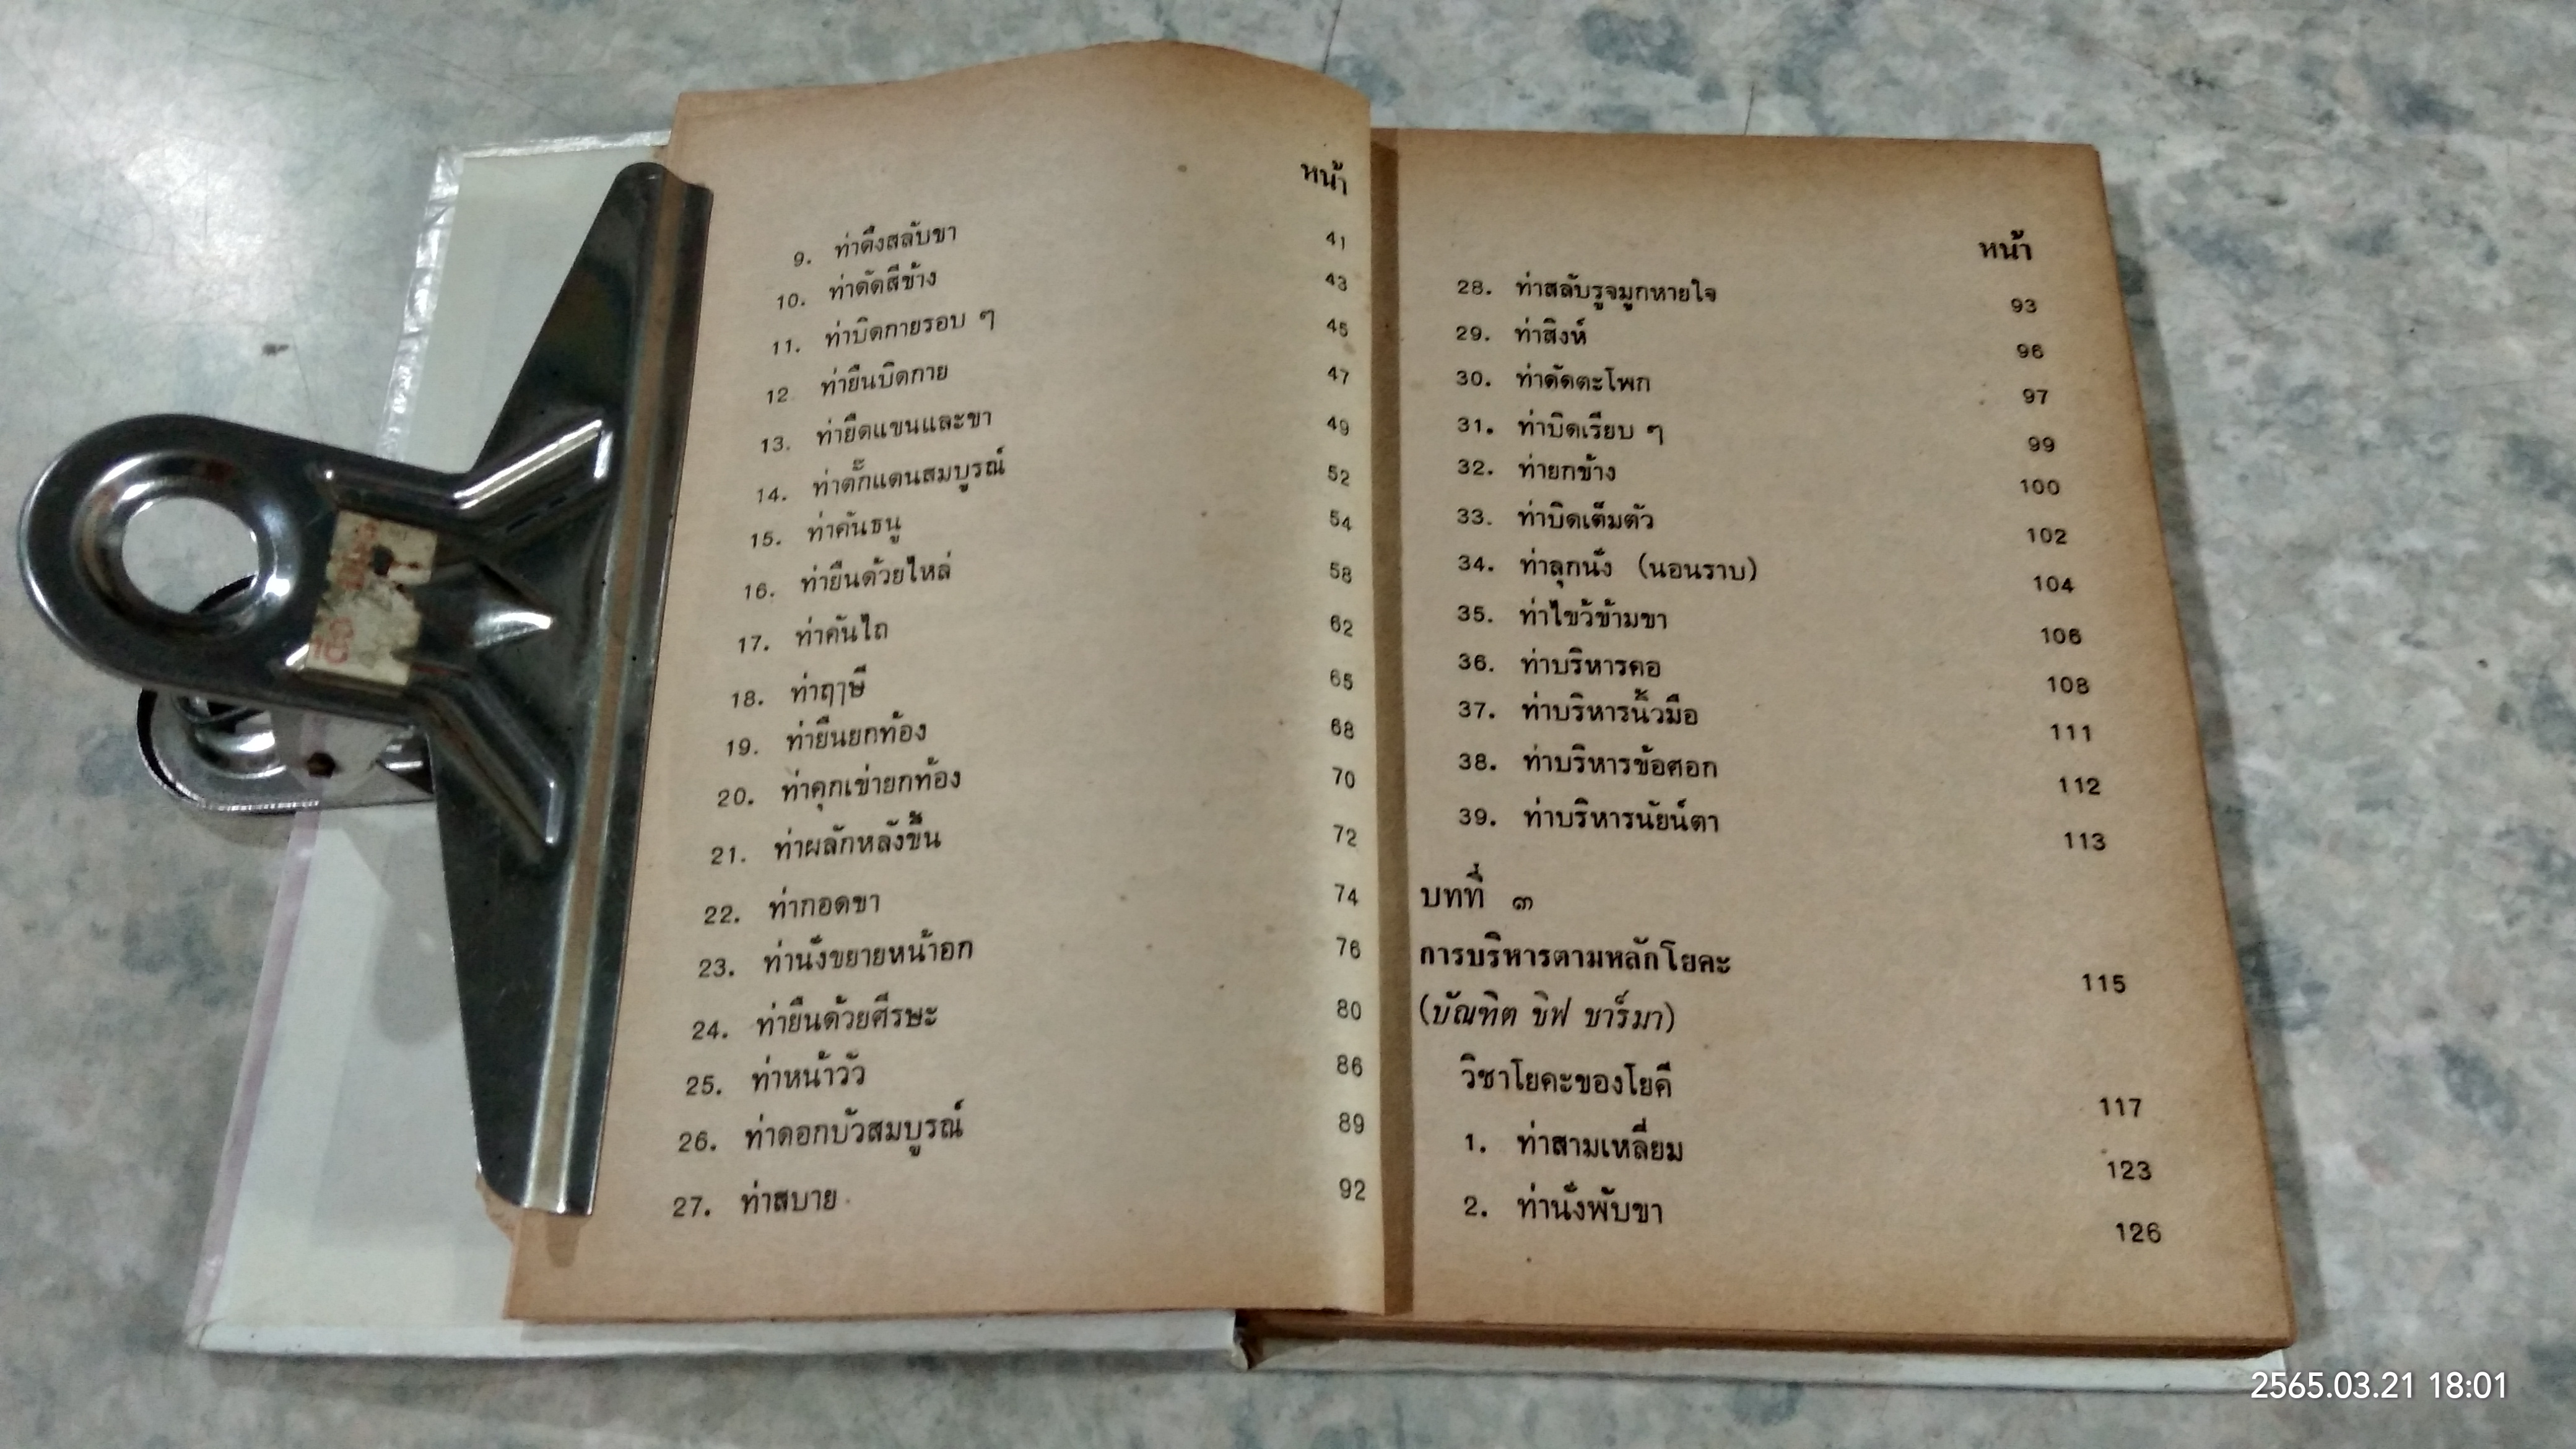 หน้า
9. ท่าดึงสลับขา 41
10. ท่าดัดสีข้าง 43
11. ท่าบิดกายรอบ ๆ 45
12 ท่ายืนบิดกาย 47
13. ท่ายืดแขนและขา 49
14. ท่าตั๊กแตนสมบูรณ์ 52
15. ท่าคันธนู 54
16. ท่ายืนด้วยไหล่ 58
17. ท่าคันไถ 62
18. ท่าฤๅษี 65
19. ท่ายืนยกท้อง 68
20. ท่าคุกเข่ายกท้อง 70
21. ท่าผลักหลังขึ้น 72
22. ท่ากอดขา 74
23. ท่านั่งขยายหน้าอก 76
24. ท่ายืนด้วยศีรษะ 80
25. ท่าหน้าวัว 86
26. ท่าดอกบัวสมบูรณ์ 89
27. ท่าสบาย 92
หน้า
28. ท่าสลับรูจมูกหายใจ 93
29. ท่าสิงห์ 96
30. ท่าดัดตะโพก 97
31. ท่าบิดเรียบ ๆ 99
32. ท่ายกข้าง 100
33. ท่าบิดเต็มตัว 102
34. ท่าลุกนั่ง (นอนราบ) 104
35. ท่าไขว้ข้ามขา 106
36. ท่าบริหารคอ 108
37. ท่าบริหารนิ้วมือ 111
38. ท่าบริหารข้อศอก 112
39. ท่าบริหารนัยน์ตา 113
บทที่ ๓
การบริหารตามหลักโยคะ 115
(บัณฑิต ชิฟ ชาร์มา)
วิชาโยคะของโยคี 117
1. ท่าสามเหลี่ยม 123
2. ท่านั่งพับขา 126
2565.03.21 18:01